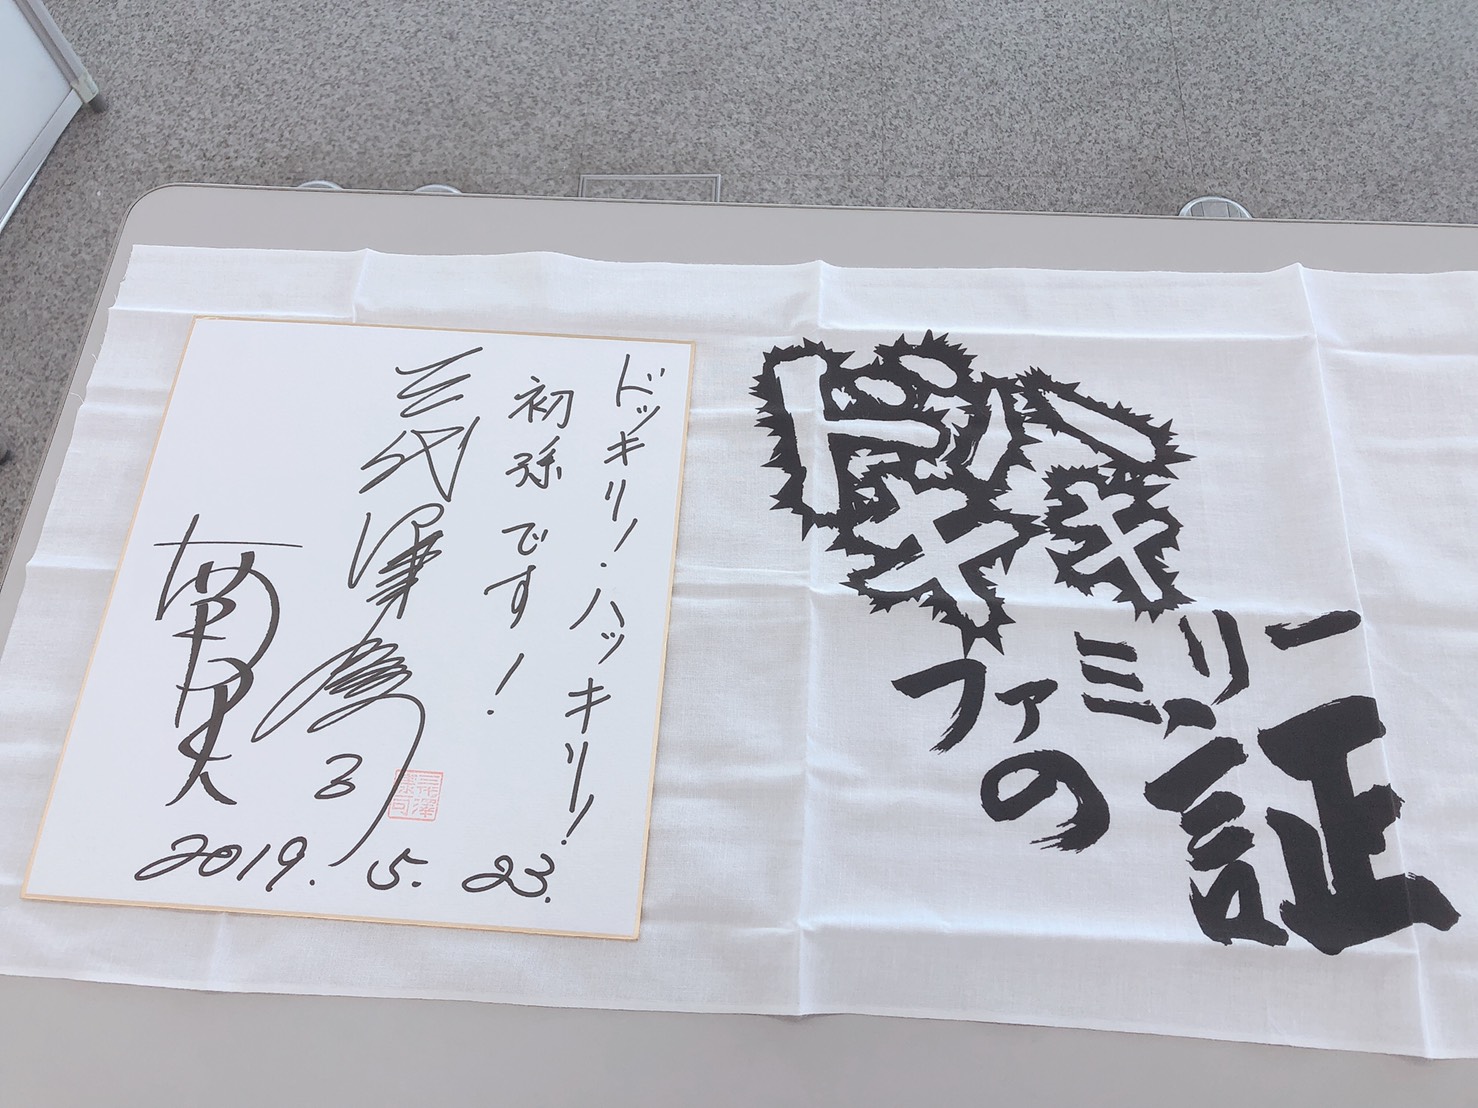 ドッキリ!ハッキリ!
初孫です!
三代澤康司
2019.5.23.
三代澤康司
ドキハキ
ファミリー
の証